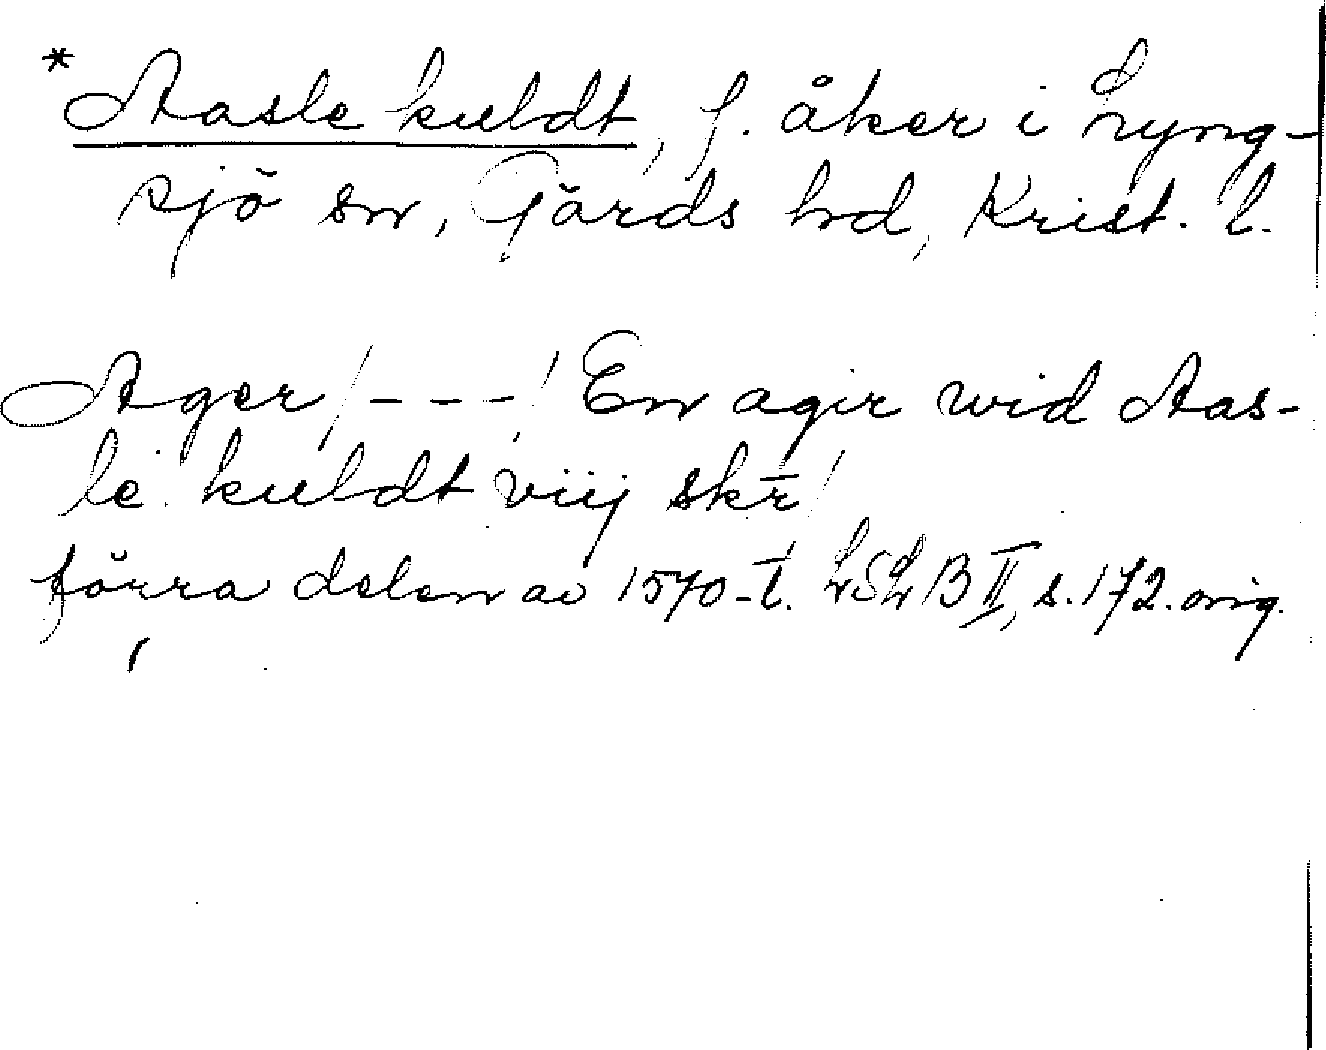 *Aasle kuldt, f. åker i Lyng-
sjö sn, Gärds hd, Krist. l.
Ager/---/ En agir wid Aas-
le kuldt viij skr̄/
förra delen av 1570-t. LSLB II, s. 172. orig.